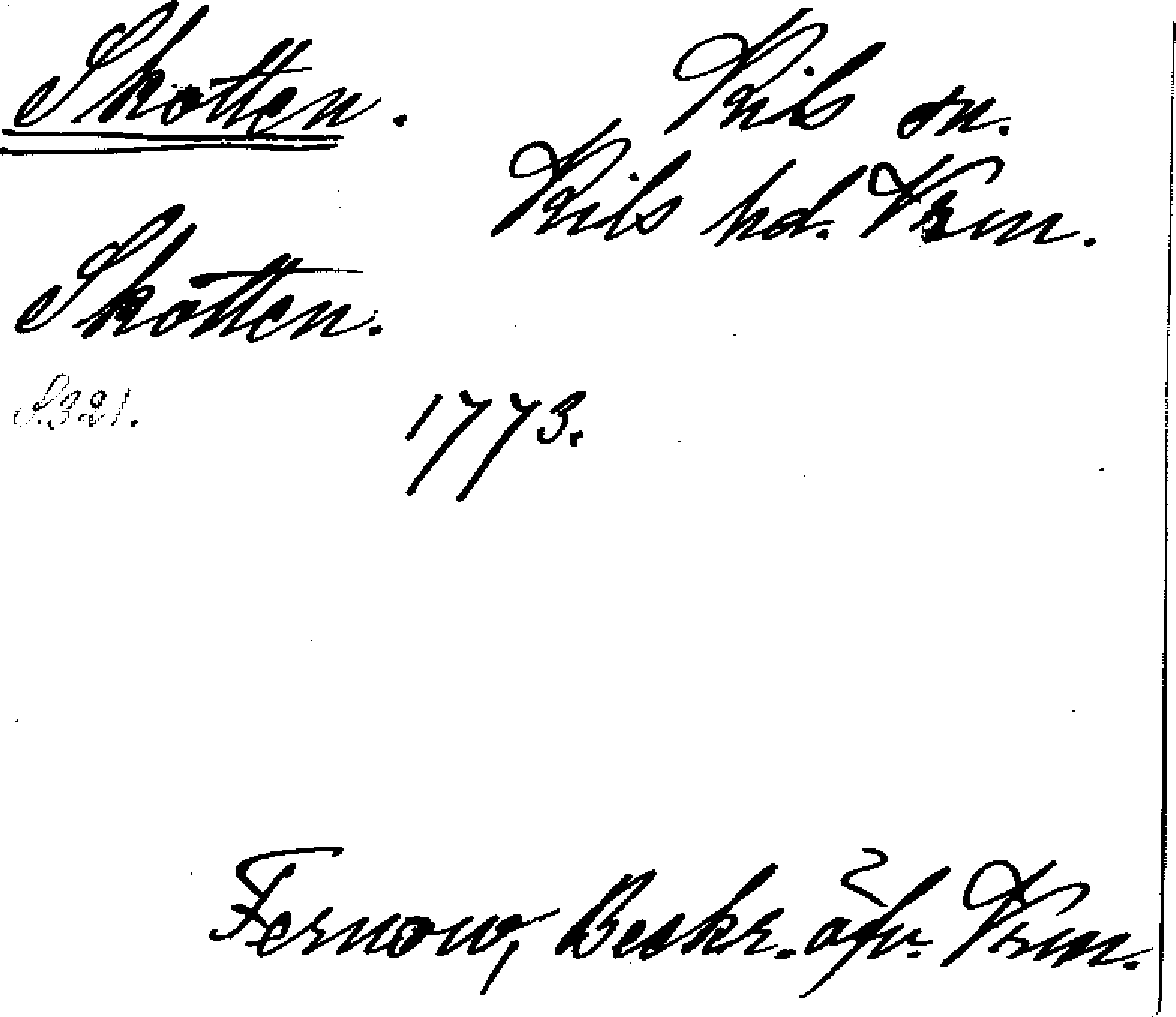 Skotten. Kils sn.
Kils hd. Vrm.
Skotten.
S. 321. 1773.
Fernow, Beskr. öfv. Vrm.